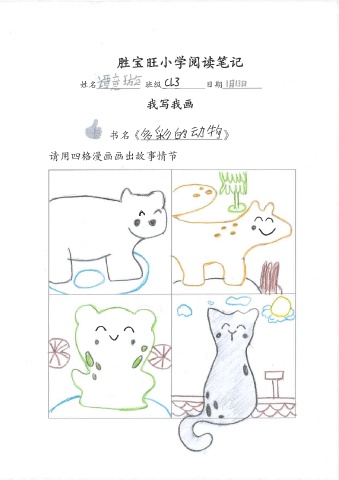 胜宝旺小学阅读笔记
姓名 班级 CL3 日期 1月13日
我写我画
书名《多彩的动物》
请用四格漫画画出故事情节